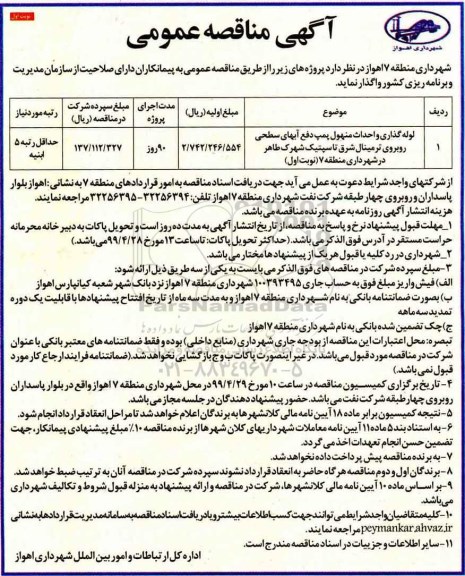 نوبت اول
شهرداری اهواز
آگهی مناقصه عمومی
شهرداری منطقه ۷ اهواز در نظر دارد پروژه های زیر را از طریق مناقصه عمومی به پیمانکاران دارای صلاحیت از سازمان مدیریت
و برنامه ریزی کشور واگذار نماید.
ردیف موضوع مبلغ اولیه (ریال) مدت اجرای پروژه مبلغ سپرده شرکت در مناقصه (ریال) رتبه مورد نیاز
۱ لوله گذاری و احداث منهول پمپ دفع آبهای سطحی روبروی ترمینال شرق تا سپتیک شهرک طاهر در شهرداری منطقه ۷ (نوبت اول) ۲/۷۴۲/۲۴۶/۵۵۴ ۹۰ روز ۱۳۷/۱۱۲/۳۲۷ حداقل رتبه ۵ ابنیه
از شرکتهای واجد شرایط دعوت به عمل می آید جهت دریافت اسناد مناقصه به امور قراردادهای منطقه ۷ به نشانی: اهواز بلوار
پاسداران و روبروی چهار طبقه شرکت نفت شهرداری منطقه ۷ اهواز تلفن: ۳۲۲۵۶۳۹۴-۳۲۲۵۶۳۹۵ مراجعه نمایند.
هزینه انتشار آگهی روزنامه به عهده برنده مناقصه می باشد.
۱_مهلت قبول پیشنهاد نرخ و پاسخ به مناقصه، از تاریخ انتشار آگهی به مدت ده روز است و تحویل پاکات به دبیر خانه محرمانه
حراست مستقر در آدرس فوق الذکر می باشد. (حداکثر تحویل پاکات: تا ساعت ۱۳ مورخ ۹۹/۴/۲۸ می باشد).
۲_شهرداری در رد کلیه یا قبول هر یک از پیشنهادها مختار می باشد.
۳-مبلغ سپرده شرکت در مناقصه های فوق الذکر می بایست به یکی از سه طریق ذیل ارائه شود:
الف) فیش واریز مبلغ فوق به حساب جاری ۱۰۰۳۹۳۴۹۵ شهرداری منطقه ۷ اهواز نزد بانک شهر شعبه کیانپارس اهواز
ب) بصورت ضمانتنامه بانکی به نام شهرداری منطقه ۷ اهواز و به مدت سه ماه از تاریخ افتتاح پیشنهادها با قابلیت یک دوره
تمدید سه ماهه
ج) چک تضمین شده بانکی به نام شهرداری منطقه ۷ اهواز
تبصره: محل اعتبارات این مناقصه از بودجه جاری شهرداری (منابع داخلی) بوده و فقط ضمانتنامه های معتبر بانکی با عنوان
شرکت در مناقصه مورد قبول می باشد. در غیر اینصورت پاکات ب و ج بازگشایی نخواهد شد. (ضمانتنامه فرایند ارجاع کار مورد
قبول نمی باشد)
۴- تاریخ برگزاری کمیسیون مناقصه در ساعت ۱۰ مورخ ۹۹/۴/۲۹ در محل شهرداری منطقه ۷ اهواز واقع در بلوار پاسداران
روبروی چهار طبقه شرکت نفت می باشد. حضور پیشنهاد دهندگان در جلسه مجاز می باشد.
۵-نتیجه کمیسیون برابر ماده ۱۸ آیین نامه مالی کلانشهرها به برندگان اعلام خواهد شد تا مراحل انعقاد قرارداد انجام شود.
۶-به استناد بند ۵ ماده ۱۱ آیین نامه معاملات شهرداریهای کلان شهرها از برنده مناقصه ۱۰٪ مبلغ پیشنهادی پیمانکار، جهت
تضمین حسن انجام تعهدات اخذ می گردد.
۷-به برنده مناقصه پیش پرداخت داده نخواهد شد.
۸-برندگان اول و دوم مناقصه هرگاه حاضر به انعقاد قرارداد نشوند سپرده شرکت در مناقصه آنان به ترتیب ضبط خواهد شد.
۹-بر اساس ماده ۱۰ آیین نامه مالی کلانشهرها، شرکت در مناقصه و ارائه پیشنهاد به منزله قبول شروط و تکالیف شهرداری
می باشد.
۱۰-کلیه متقاضیان واجد شرایط می توانند جهت کسب اطلاعات بیشتر و یا دریافت اسناد مناقصه به سامانه مدیریت قراردادها به نشانی
peymankar.ahvaz.ir مراجعه نمایند.
۱۱-سایر اطلاعات و جزییات در اسناد مناقصه مندرج است.
اداره کل ارتباطات و امور بین الملل شهرداری اهواز
ParsNamadData
۰۲۱-۸۸۳۴۹۶۷۰-۵